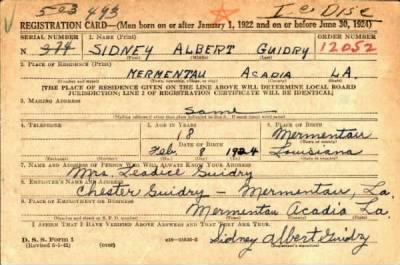 503 493
I-e Disc
REGISTRATION CARD—(Men born on or after January 1, 1922 and on or before June 30, 1924)
SERIAL NUMBER 1. NAME (Print) ORDER NUMBER
N 274 SIDNEY ALBERT GUIDRY 12052
(First) (Middle) (Last)
2. PLACE OF RESIDENCE (Print)
MERMENTAU ACADIA LA.
(Number and street) (Town, township, village, or city) (County) (State)
[THE PLACE OF RESIDENCE GIVEN ON THE LINE ABOVE WILL DETERMINE LOCAL BOARD
JURISDICTION; LINE 2 OF REGISTRATION CERTIFICATE WILL BE IDENTICAL]
3. MAILING ADDRESS
Same
[Mailing address if other than place indicated on line 2. If same insert word same]
4. TELEPHONE 5. AGE IN YEARS 6. PLACE OF BIRTH
18 Mermentau
DATE OF BIRTH (Town or county)
Feb 8 1924 Louisiana
(Exchange) (Number) (Mo.) (Day) (Yr.) (State or country)
7. NAME AND ADDRESS OF PERSON WHO WILL ALWAYS KNOW YOUR ADDRESS
Mrs. Leadice Guidry
8. EMPLOYER'S NAME AND ADDRESS
Chester Guidry - Mermentau, La.
9. PLACE OF EMPLOYMENT OR BUSINESS
Mermentau Acadia La
(Number and street or R. F. D. number) (Town) (County) (State)
I AFFIRM THAT I HAVE VERIFIED ABOVE ANSWERS AND THAT THEY ARE TRUE.
D. S. S. Form 1
(Revised 6-9-41)
Sidney Albert Guidry